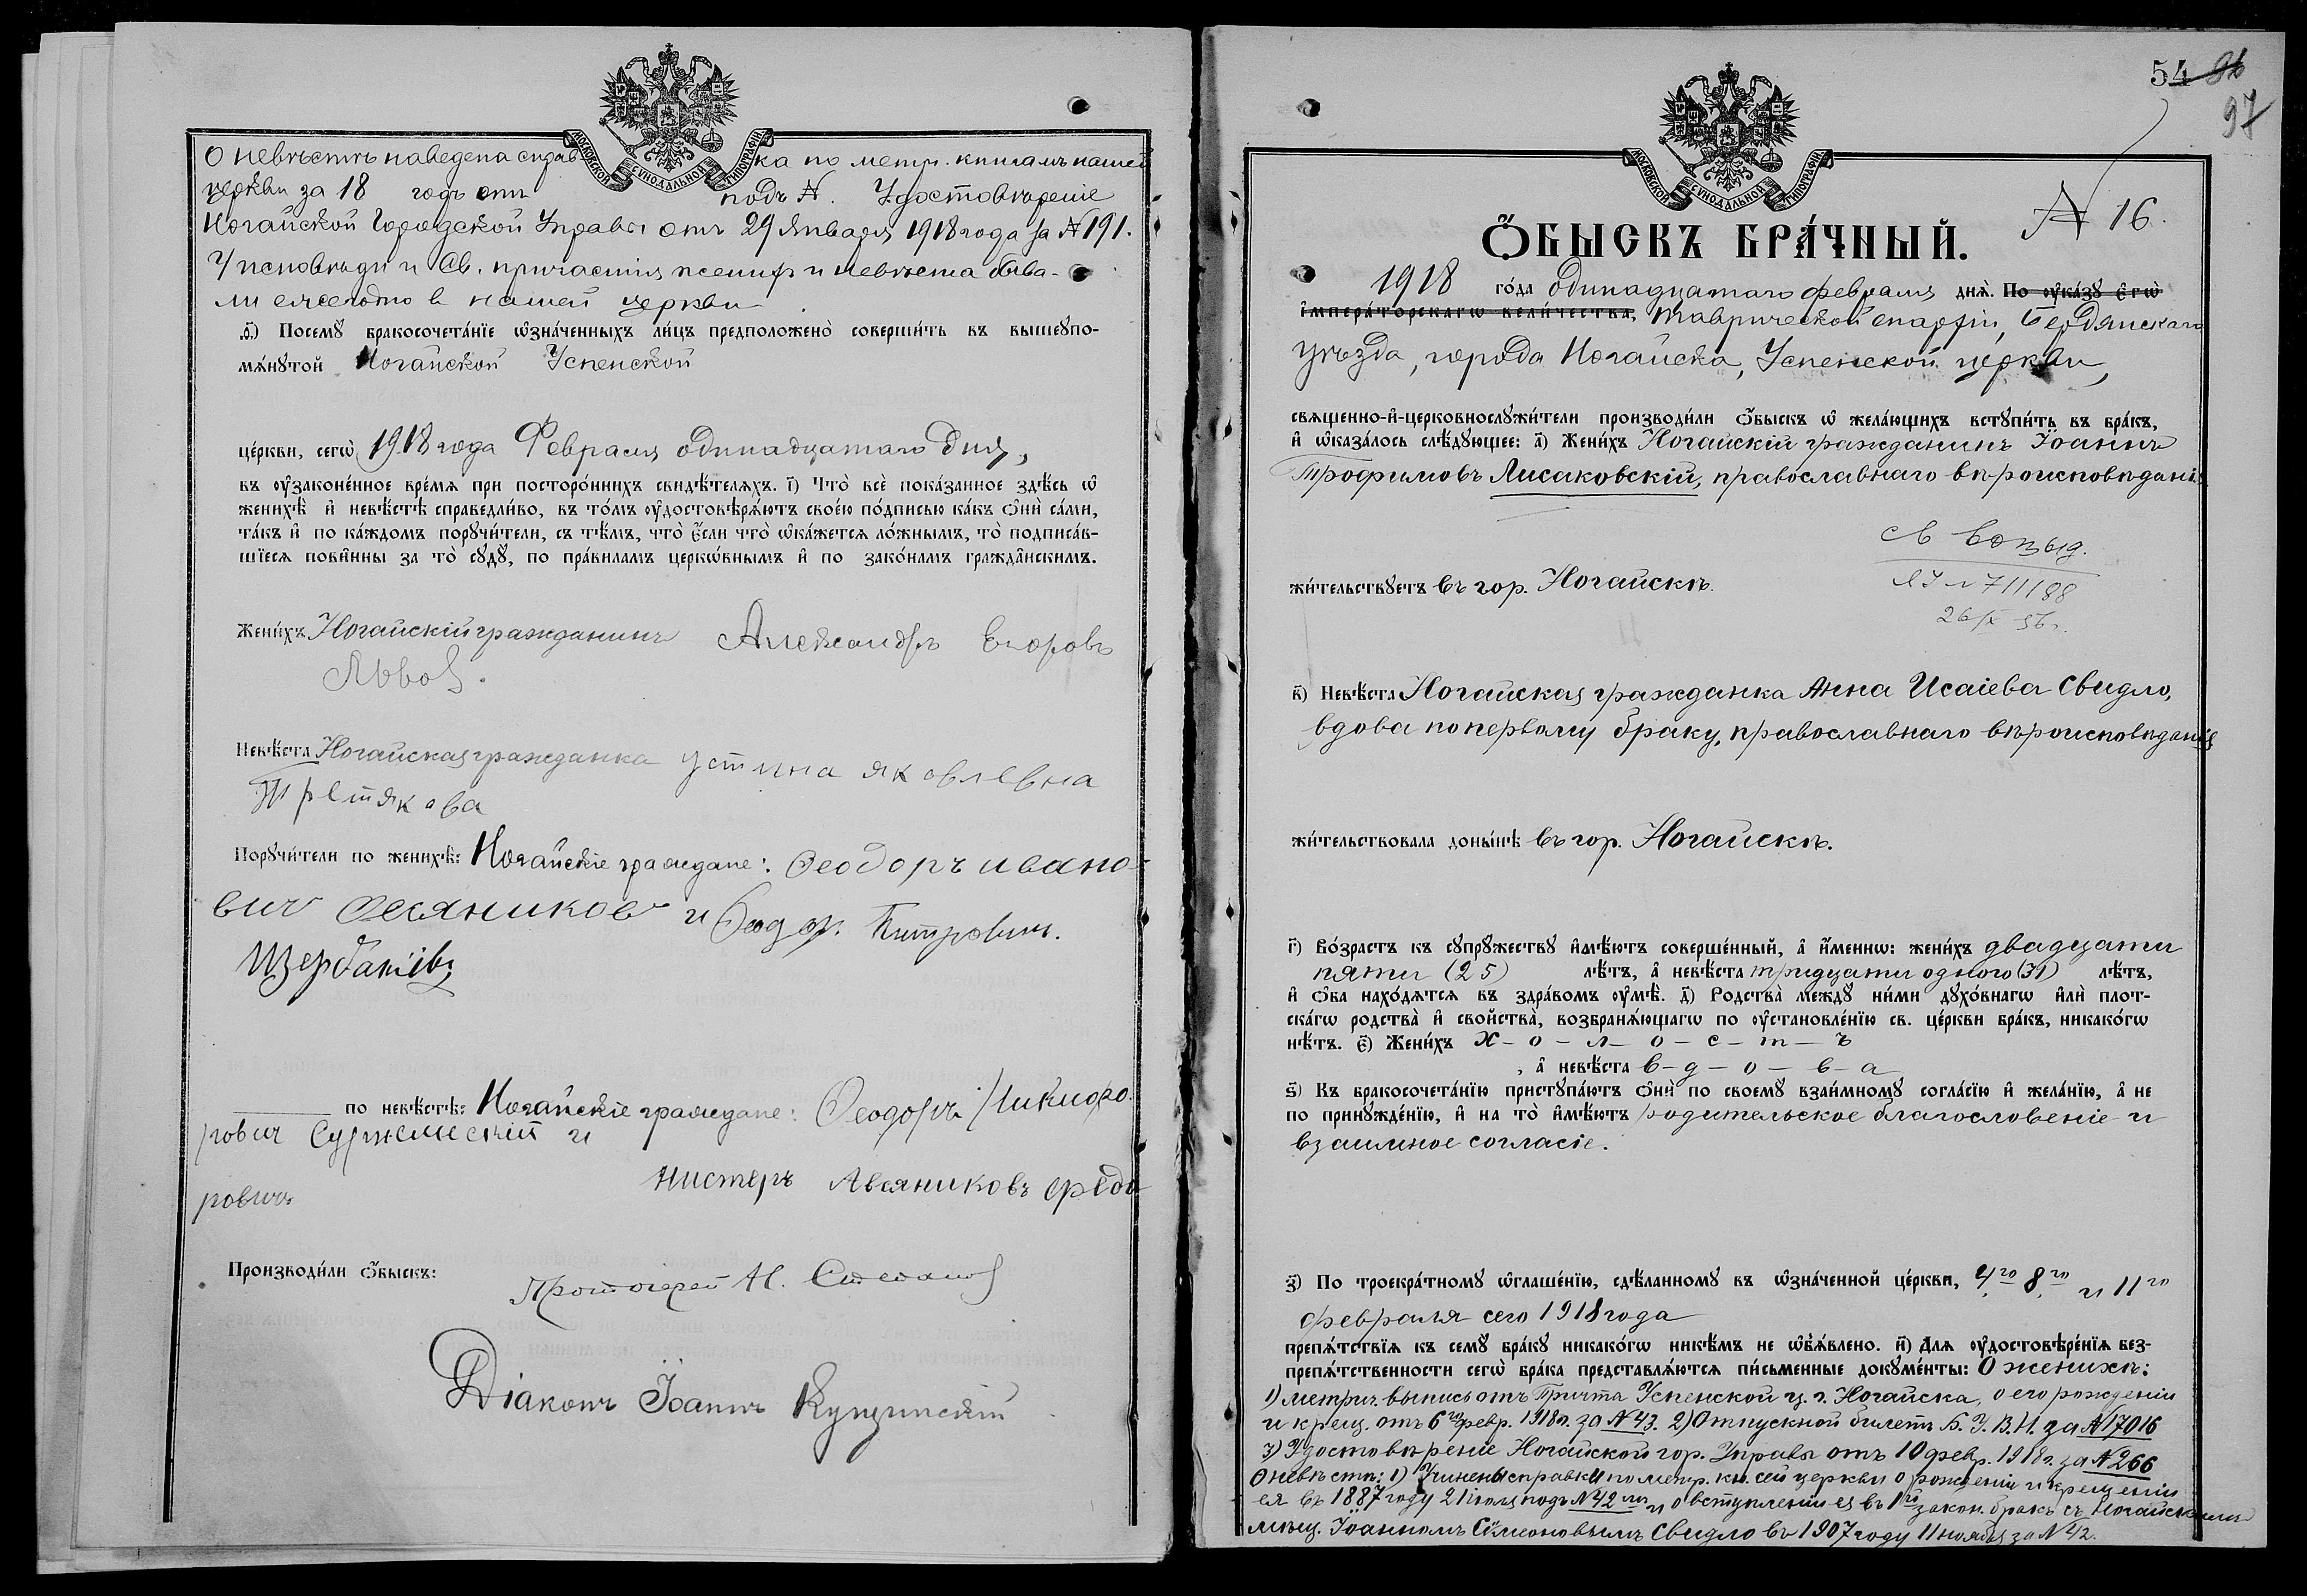 МОСКОВСКОЙ СѴНОДАЛЬНОЙ ТИПОГРАФІИ.
О невѣстѣ наведена справка по метр. книгамъ нашей
церкви за 18 годъ отъ подъ №. Удостовѣреніе
Ногайской Городской Управы отъ 29 Января 1918 года за № 191.
У исповѣди и Св. причастія женихъ и невѣста быва-
ли ежегодно в нашей церкви
ѳ҃) Посемꙋ̀ бракосочета́нїе ѡ҆зна́ченныхъ ли́цъ предположено̀ соверши́ть въ вышеупо-
мѧ́нꙋтой Ногайской Успенской
це́ркви, сегѡ̀ 1918 года Февраля одинадцатаго дня,
въ оу҆зако́ненное вре́мѧ при посторо́ннихъ свидѣ́телѧхъ. і҃) Что̀ всѐ пока́занное здѣ́сь ѡ҆
женихѣ̀ и҆ невѣ́стѣ справедли́во, въ то́мъ оу҆достовѣрѧ́ютъ свое́ю по́дписью ка́къ ѻ҆нѝ са́ми,
та́къ и҆ по ка́ждомъ порꙋчи́тели, съ тѣ́мъ, что̀ є҆́сли что̀ ѡ҆ка́жетсѧ ло́жнымъ, то̀ подписа́в-
шїесѧ пови́нны за то̀ сꙋдꙋ̀, по пра́виламъ церкѡ́внымъ и҆ по зако́намъ гражда́нскимъ.
Жени́хъ Ногайскій гражданинъ Александръ Егоровъ
Львов.
Невѣ́ста Ногайская гражданка устина яковлевна
Третякова
Порꙋчи́тели по женихѣ̀: Ногайскіе граждане: Ѳеодоръ ивано-
вич Овсяников и Ѳеодор. Питровичъ.
Щербаківъ
по невѣ́стѣ: Ногайскіе граждане: Ѳеодоръ Никифо-
ровичъ и
нистеръ Авсяниковъ федо
ровичъ
Производи́ли ѻ҆́быскъ:
Протоіерей Н. Степанов
Діаконъ Іоаннъ Кущинскій
54 96
97
МОСКОВСКОЙ СѴНОДАЛЬНОЙ ТИПОГРАФІИ.
№ 16.
Ѻ҆́БЫСКЪ БРА́ЧНЫЙ.
1918 го́да одинадцатаго февраля днѧ̀. По оу҆ка́зꙋ є҆гѡ̀
і҆мпера́торскагѡ вели́чества, таврической епархіи, Бердянскаго
уѣзда, города Ногайска, Успенской церкви,
свѧщенно-и҆-церковнослꙋжи́тели производи́ли ѻ҆́быскъ ѡ҆ жела́ющихъ встꙋпи́ть въ бра́къ,
и҆ ѡ҆каза́лось слѣ́дꙋющее: а҃) Жени́хъ Ногайскій гражданинъ Іоаннъ
Трофимовъ Лисаковскій, православнаго вѣроисповѣданія
св выд.
ЯУ № 711188
26/X 56г.
жи́тельствꙋетъ въ гор. Ногайскѣ.
в҃) Невѣ́ста Ногайская гражданка Анна Исаіева Свидло,
вдова по первому браку, православнаго вѣроисповѣданія
жи́тельствовала доны́нѣ въ гор. Ногайскѣ.
г҃) Во́зрастъ къ сꙋпрꙋ́жествꙋ и҆мѣ́ютъ соверше́нный, а҆ и҆́меннѡ: жени́хъ двадцати
пяти (25) лѣ́тъ, а҆ невѣ́ста тридцати одного (31) лѣ́тъ,
и҆ ѻ҆́ба нахо́дѧтсѧ въ здра́вомъ оу҆мѣ̀. д҃) Родства̀ междꙋ̀ ни́ми дꙋхо́внагѡ и҆лѝ плот-
ска́гѡ родства̀ и҆ свойства̀, возбранѧ́ющагѡ по оу҆становле́нїю св. це́ркви бра́къ, никако́гѡ
нѣ́тъ. є҃) Жени́хъ х – о – л – о – с – т – ъ
, а҆ невѣ́ста в – д – о – в – а
ѕ҃) Къ бракосочета́нїю пристꙋпа́ютъ ѻ҆нѝ по своемꙋ̀ взаи́мномꙋ согла́сїю и҆ жела́нїю, а҆ не
по принꙋжде́нїю, и҆ на то̀ и҆мѣ́ютъ родительское благословеніе и
взаимное согласіе.
з҃) По троекра́тномꙋ ѡ҆глаше́нїю, сдѣ́ланномꙋ въ ѡ҆зна́ченной це́ркви, 4го, 8го и 11го
февраля сего 1918 года
препѧ́тствїѧ къ семꙋ̀ бра́кꙋ никако́гѡ никѣ́мъ не ѡ҆б̾ѧ́влено. и҃) Для оу҆достовѣре́нїѧ без-
препѧ́тственности сегѡ̀ бра́ка представлѧ́ютсѧ пи́сьменные докꙋме́нты: О женихѣ:
1) метрич. выпись отъ Причта Успенской ц. г. Ногайска, о его рожденіи
и крещ. отъ 6го февр. 1918 г. за № 43. 2) Отпускной билетъ Б. У. В. Н. за № 17016
3) Удостовѣреніе Ногайской гор. Управы отъ 10 февр. 1918 г. за № 266
О невѣстѣ: 1) Учинены справки по метр. кн. сей церкви о рожденіи и крещеніи
ея въ 1887 году 21 іюля подъ № 42 и о вступленіи ея въ 1й закон. бракъ съ Ногайскимъ
мѣщ. Іоанномъ Сѵмеоновымъ Свидло въ 1907 году 11 ноября за № 42.